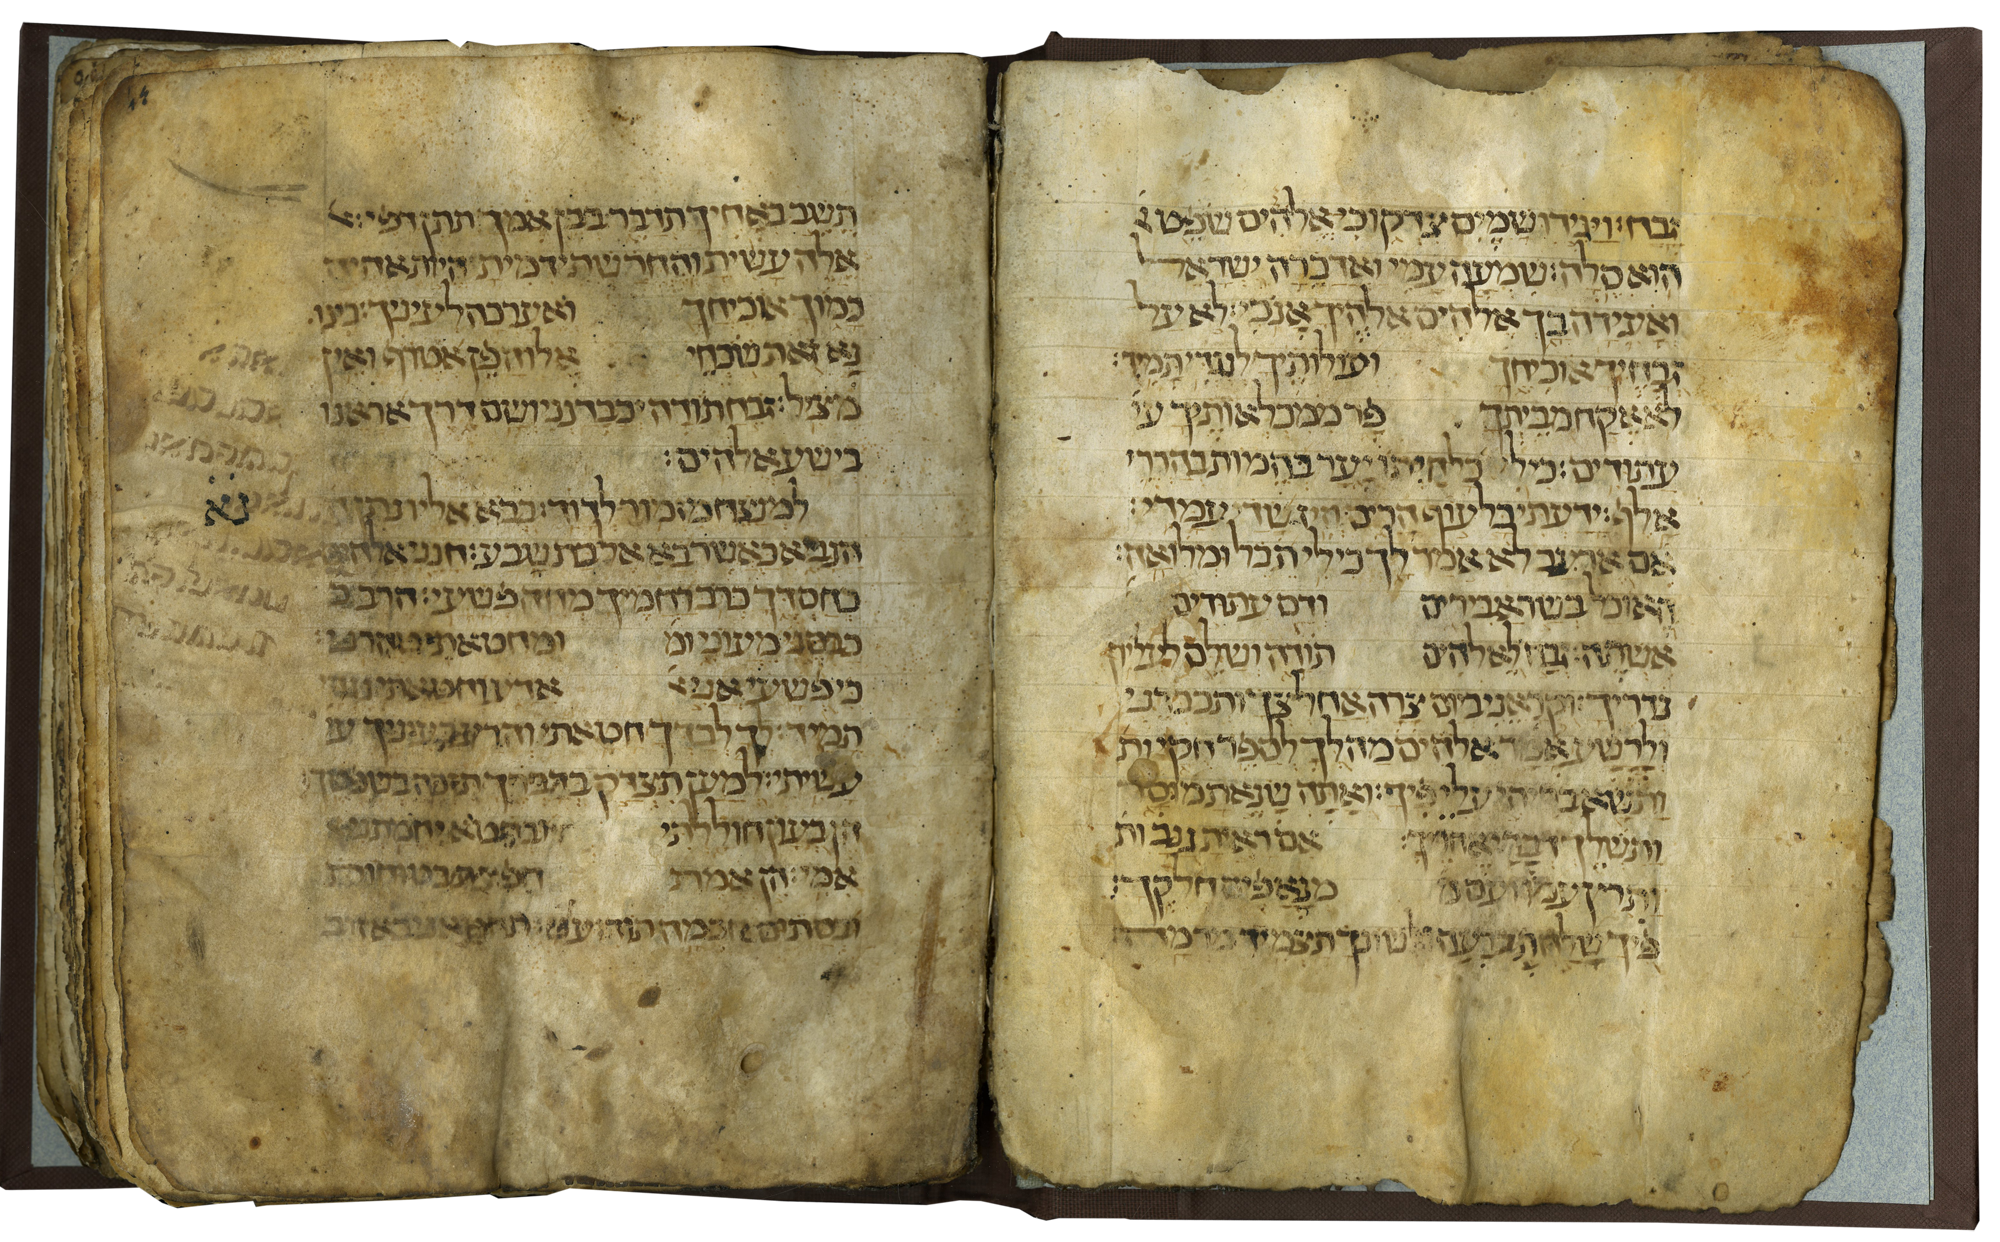 זבח: ויגידו שמים צדקו כי אלהים שפט
הוא סלה: שמעה עמי ואדברה ישראל
ואעידה בך אלהים אלהיך אנכי: לא על
זבחיך אוכיחך ועולותיך לנגדי תמיד:
לא אקח מביתך פר ממכלאותיך ע
עתודים: כי לי כל חיתו יער בהמות בהררי
אלף: ידעתי כל עוף הרים וזיז שדי עמדי:
אם ארעב לא אמר לך כי לי תבל ומלואה:
האוכל בשר אבירים ודם עתודים
אשתה: זבח לאלהים תודה ושלם לעליון
נדריך: וקראני ביום צרה אחלצך ותכבדני
ולרשע אמר אלהים מה לך לספר חקי ות
ותשא בריתי עלי פיך: ואתה שנאת מוסר
ותשלך דברי אחריך: אם ראית גנב ות
ותרץ עמו ועם מ מנאפים חלקך:
פיך שלחת ברעה ולשונך תצמיד מרמה
תשב באחיך תדבר בבן אמך תתן דפי:
אלה עשית והחרשתי דמית היות אהיה
כמוך אוכיחך ואערכה לעיניך: בינו
נא זאת שכחי אלוה פן אטרוף ואין
מציל: זבח תודה יכבדנני ושם דרך אראנו
בישע אלהים:
נא
למנצח מזמור לדוד: בבא אליו נתן
הנביא כאשר בא אל בת שבע: חנני אלהים
כחסדך כרב רחמיך מחה פשעי: הרב
כבסני מעוני ומ ומחטאתי טהרני:
כי פשעי אני אדע וחטאתי נגדי
תמיד: לך לבדך חטאתי והרע בעיניך ע
עשיתי: למען תצדק בדברך תזכה בשפטך:
הן בעון חוללתי ובחטא יחמתני
אמי: הן אמת חפצת בטוחות
ובסתום חכמה תודיעני: תחטאני באזוב